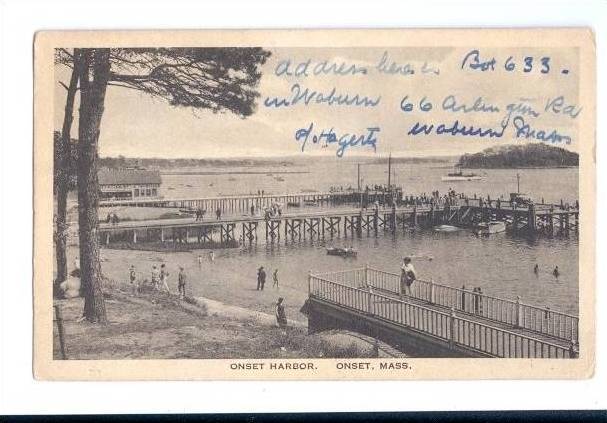 address here is Box 633.
in Woburn 66 Arlington Rd
Woburn Mass
ONSET HARBOR. ONSET, MASS.